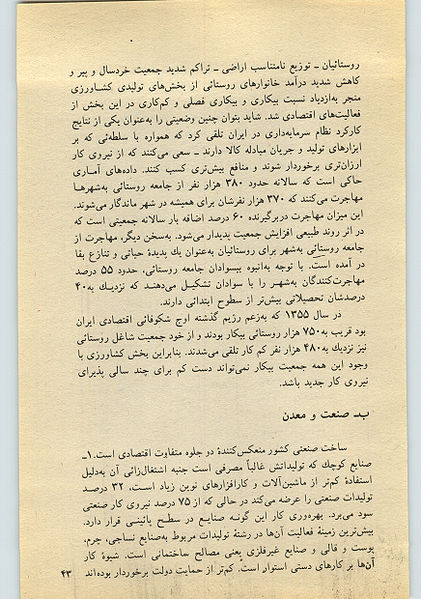 روستائیان ـ توزیع نامتناسب اراضی ـ تراکم شدید جمعیت خردسال و پیر و
کاهش شدید درآمد خانوارهای روستائی از بخش‌های تولیدی کشـاورزی
منجر به‌ازدیاد نسبت بیکاری و بیکاری فصلی و کم‌کاری در این بخش از
فعالیت‌های اقتصادی شد. شاید بتوان چنین وضعیتی را به‌عنوان یکی از نتایج
کارکرد نظام سرمایه‌داری در ایران تلقی کرد که همواره با سلطه‌ئی که بر
ابزارهای تولید و جریان مبادله کالا دارند ـ سعی می‌کنند که از نیروی کار
ارزان‌تری برخوردار شوند و منافع بیش‌تری کسب کنند. داده‌های آمـاری
حاکی است که سالانه حدود ۳۸۰ هزار نفر از جامعه روستائی به‌شهرهـا
مهاجرت می‌کنند که ۳۷۰ هزار نفرشان برای همیشه در شهر ماندگار می‌شوند.
این میزان مهاجرت دربرگیرنده ۶۰ درصد اضافه بار سالانه جمعیتی است که
در اثر روند طبیعی افزایش جمعیت پدیدار می‌شود. به‌سخن دیگر، مهاجرت از
جامعه روستائی به‌شهر برای روستائیان به‌عنوان یك پدیدهٔ حیاتی و تنازع بقا
در آمده است. با توجه به‌انبوه بیسوادان جامعه روستائی، حدود ۵۵ درصد
مهاجرت‌کنندگان به‌شهـر را با سوادان تشکیـل می‌دهنـد که نزدیـك به‌۴۰
درصدشان تحصیلاتی بیش‌تر از سطوح ابتدائی دارند.
در سال ۱۳۵۵ که به‌زعم رژیم گذشته اوج شکوفائی اقتصادی ایران
بود قریب به‌۷۵۰ هزار روستائی بیکار بودند و از خود جمعیت شاغل روستائی
نیز نزدیك به‌۴۸۰ هزار نفر کم کار تلقی می‌شدند. بنابراین بخش کشاورزی با
وجود این همه جمعیت بیکار نمی‌تواند دست کم برای چند سالی پذیرای
نیروی کار جدید باشد.
ب‌ـ صنعت و معدن
ساخت صنعتی کشور منعکس‌کنندهٔ دو جلوه متفاوت اقتصادی است.۱ـ
صنایع کوچك که تولیداتش غالباً مصرفی است جنبه اشتغال‌زائی آن به‌دلیل
استفادهٔ کم‌تر از ماشین‌آلات و کارافزارهای نوین زیاد اسـت، ۳۲ درصـد
تولیدات صنعتی را عرضه می‌کند در حالی که از ۷۵ درصد نیروی کار صنعتی
سود می‌برد. بهره‌وری کار این گونـه صنایـع در سطـح پائینـی قرار دارد.
بیش‌ترین زمینهٔ فعالیت آن‌ها در رشتهٔ تولیدات مربوط به‌صنایع نساجی، چرم،
پوست و قالی و صنایع غیرفلزی یعنی مصالح ساختمانی است. شیوهٔ کار
آن‌ها بر کارهای دستی استوار است. کم‌تر از حمایت دولت برخوردار بوده‌اند
۴۳